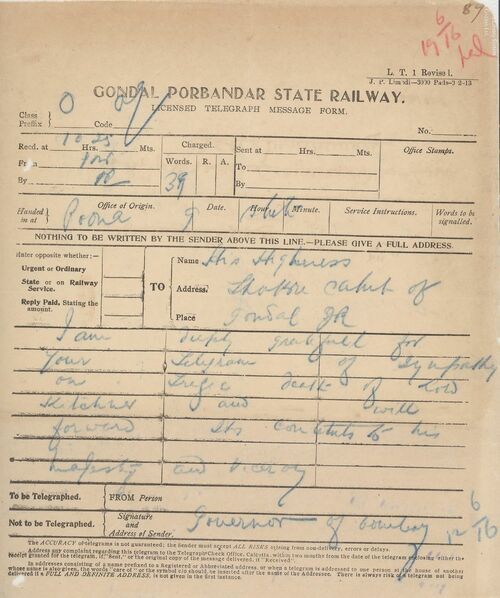 87
6
19 16
L. T. 1 Revised.
J. P. 3000 Pads-3 2-13
GONDAL PORBANDAR STATE RAILWAY.
LICENSED TELEGRAPH MESSAGE FORM.
Class
Prefix } O Code
No.
Recd. at 10 25 Hrs. Mts.
From
By
Charged.
Words. R. A.
39
Sent at Hrs. Mts.
To
By
Office Stamps.
Handed in at } Office of Origin. Date. Hour. Minute. Service Instructions. Words to be signalled.
Poona 9
NOTHING TO BE WRITTEN BY THE SENDER ABOVE THIS LINE.—PLEASE GIVE A FULL ADDRESS.
Enter opposite whether:—
Urgent or Ordinary
State or on Railway Service.
Reply Paid, Stating the amount.
TO
Name His Highness
Address. Thakore Sahib of
Place Gondal
I am deeply gratefull for
Your telegram of Sympathy
on tragic death of Lord
Kitchner and will
forward its contents to his
majesty and viceroy
To be Telegraphed. FROM Person
Not to be Telegraphed. Signature and Address of Sender.
Governor of Bombay 12 6 16
The ACCURACY of telegrams is not guaranteed; the sender must accept ALL RISKS arising from non-delivery, errors or delays.
Address any complaint regarding this telegram to the Telegraph Check Office, Calcutta, within two months from the date of the telegram enclosing either the
receipt granted for the telegram, if "Sent," or the original copy of the message delivered, if "Received"
In addresses consisting of a name prefixed to a Registered or Abbreviated address, or when a telegram is addressed to one person at the house of another
whose name is also given, the words "care of" or the symbol c/o should be inserted after the name of the Addressee. There is always risk of a telegram not being
delivered if a FULL AND DEFINITE ADDRESS, is not given in the first instance.